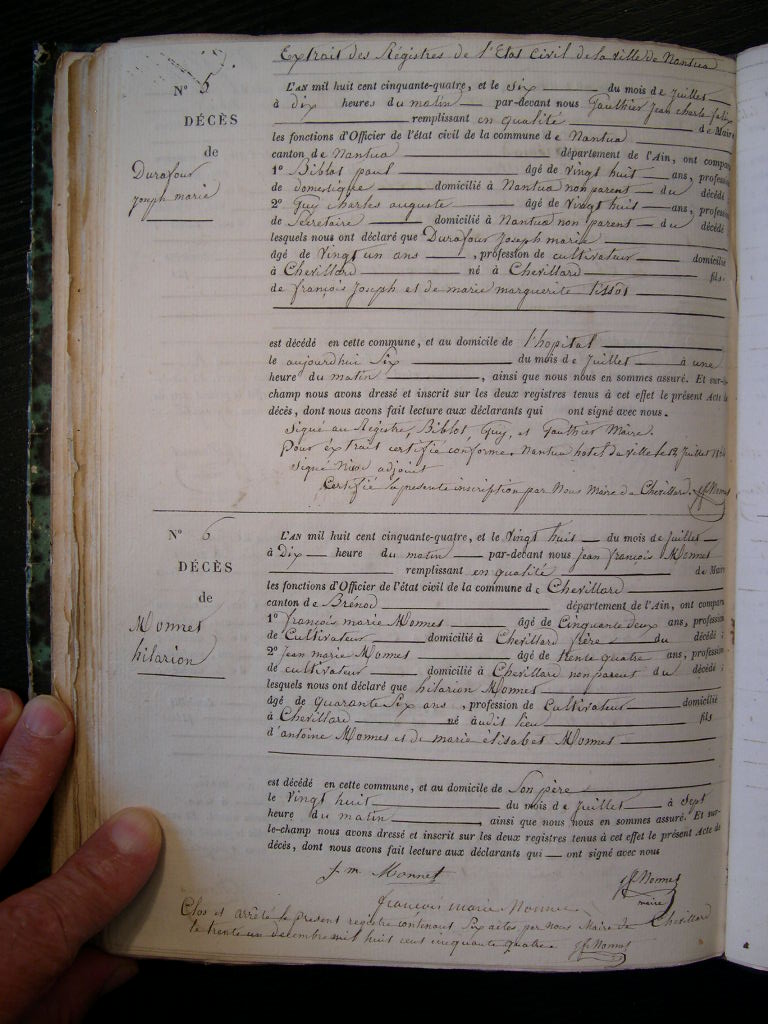 Extrait des Régistres de l'Etat Civil de la ville de Nantua
N° 5
DÉCÈS
de
Durafour
joseph marie
L'AN mil huit cent cinquante-quatre, et le six du mois de juillet
à dix heures du matin par-devant nous Gauthier jean charle felix
remplissant en qualité de Maire
les fonctions d'Officier de l'état civil de la commune de Nantua
canton de Nantua département de l'Ain, ont compar
1° Biblot paul âgé de vingt huit ans, profession
de domestique domicilié à Nantua non parent du décédé
2° Guy charles auguste âgé de Vingt huit ans, profession
de Sécretaire domicilié à Nantua non parent du décédé
lesquels nous ont déclaré que Durafour joseph marie
âgé de Vingt un ans, profession de cultivateur domicilié
à Chevillard né à Chevillard fils
de françois joseph et de marie marguerite tissot
est décédé en cette commune, et au domicile de l'hopital
le aujourdhui Six du mois de juillet à une
heure du matin, ainsi que nous nous en sommes assuré. Et sur-le-
champ nous avons dressé et inscrit sur les deux registres tenus à cet effet le présent Acte de
décès, dont nous avons fait lecture aux déclarants qui ont signé avec nous.
signé au Régistre, Biblot, Guy, et Gauthier Maire.
Pour éxtrait certifié conforme. Nantua hotel de ville le 12 juillet
signé adjoint
Certifié la présente inscription par Nous Maire de Chevillard. Monnet
N° 6
DÉCÈS
de
Monnet
hilarion
L'AN mil huit cent cinquante-quatre, et le Vingt huit du mois de juillet
à Dix heure du matin par-devant nous Jean françois Monnet
remplissant en qualité de Maire
les fonctions d'Officier de l'état civil de la commune de Chevillard
canton de Brénod département de l'Ain, ont compar
1° françois marie Monnet âgé de Cinquante deux ans, profession
de Cultivateur domicilié à Chevillard frère du décédé ;
2° jean marie Monnet âgé de trente quatre ans, profession
de cultivateur domicilié à Chevillard non parent du décédé ;
lesquels nous ont déclaré que hilarion Monnet
âgé de Quarante Six ans, profession de Cultivateur domicilié
à Chevillard né audit lieu fils
d'antoine Monnet et de marie élisabet Monnet
est décédé en cette commune, et au domicile de Son père
le Vingt huit du mois de juillet à sept
heure du matin, ainsi que nous nous en sommes assuré. Et sur-
le-champ nous avons dressé et inscrit sur les deux registres tenus à cet effet le présent Acte de
décès, dont nous avons fait lecture aux déclarants qui ont signé avec nous
j. m. Monnet
Monnet
maire
francois marie Monnet
Clos et arrêté le present registre contenant Six actes par nous Maire de Chevillard
le trente un decembre mil huit cent cinquante quatre Monnet